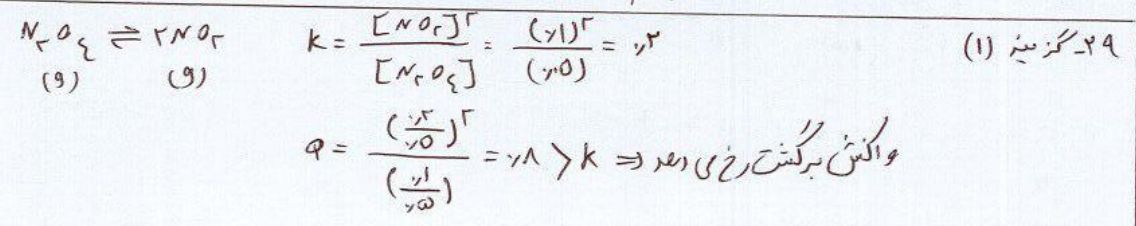 ۲۹ـ گزینه (۱)
N۲O۴ ⇌ ۲NO۲    K = [NO۲]^۲ / [N۲O۴] = (۰/۱)^۲ / (۰/۰۵) = ۰/۲
(g)    (g)
Q = (۰/۲ / ۰/۵)^۲ / (۰/۱ / ۰/۵) = ۰/۸ > K ⇒ واکنش برگشت رخ می دهد